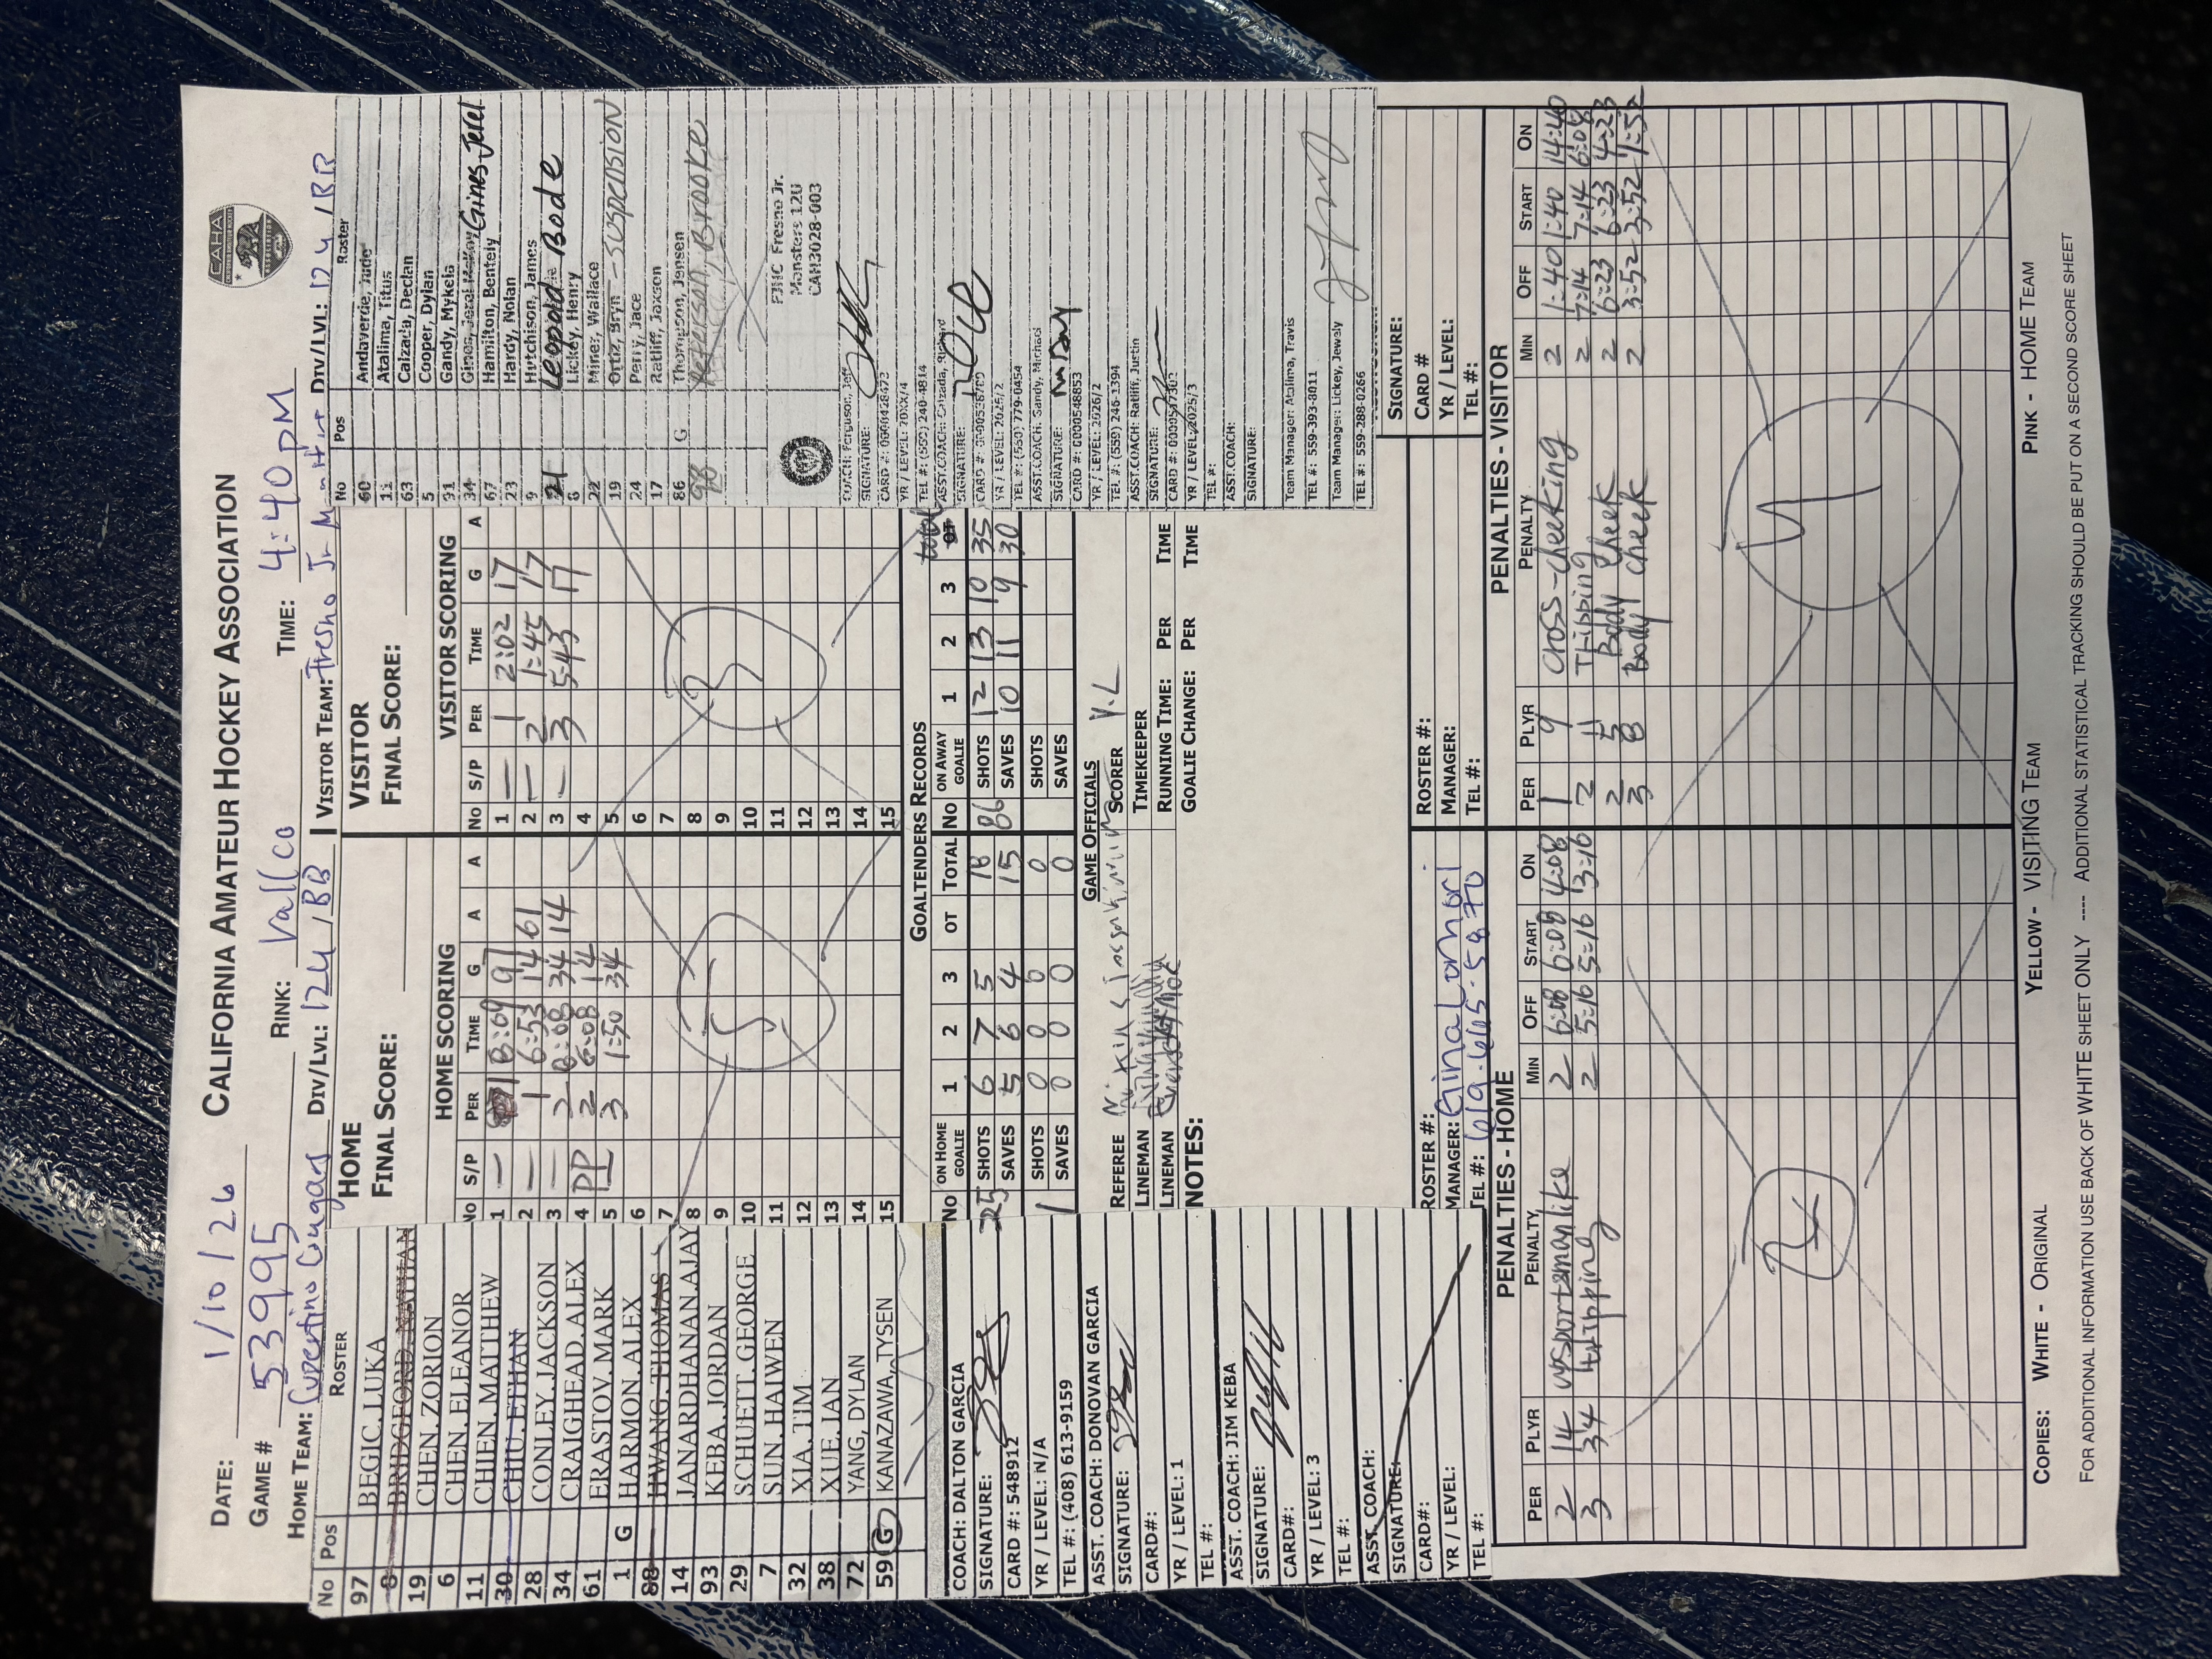 CAHA
CALIFORNIA AMATEUR HOCKEY ASSOCIATION
DATE: 1/10/26
GAME # 53995 RINK: Vallco TIME: 4:40 PM
HOME TEAM: Cupertino Cougars DIV/LVL: 12U / BB VISITOR TEAM: Fresno Jr Monster DIV/LVL: 12U / BB
No Pos ROSTER
97 BEGIC, LUKA
8 BRIDGFORD, NATHAN
19 CHEN, ZORION
6 CHEN, ELEANOR
11 CHIEN, MATTHEW
30 CHIU, ETHAN
28 CONLEY, JACKSON
34 CRAIGHEAD, ALEX
61 ERASTOV, MARK
1 G HARMON, ALEX
88 HWANG, THOMAS
14 JANARDHANAN, AJAY
93 KEBA, JORDAN
29 SCHUETT, GEORGE
7 SUN, HAIWEN
32 XIA, TIM
38 XUE, IAN
72 YANG, DYLAN
59 G KANAZAWA, TYSEN
COACH: DALTON GARCIA
SIGNATURE:
CARD #: 548912
YR / LEVEL: N/A
TEL #: (408) 613-9159
ASST. COACH: DONOVAN GARCIA
SIGNATURE:
CARD#:
YR / LEVEL: 1
TEL #:
ASST. COACH: JIM KEBA
SIGNATURE:
CARD#:
YR / LEVEL: 3
TEL #:
ASST. COACH:
SIGNATURE:
CARD#:
YR / LEVEL:
TEL #:
HOME
FINAL SCORE:
HOME SCORING
No S/P PER TIME G A A
1 — 1 8:09 97
2 — 1 6:53 14 61
3 — 2 8:08 34 14
4 PP 2 6:08 14
5 — 3 1:50 34
6
7
8
9
10
11
12
13
14
15
5
VISITOR
FINAL SCORE:
VISITOR SCORING
No S/P PER TIME G A
1 — 1 2:02 17
2 — 2 1:45 17
3 — 3 5:43 17
4
5
6
7
8
9
10
11
12
13
14
15
3
GOALTENDERS RECORDS
No ON HOME GOALIE 1 2 3 OT TOTAL No ON AWAY GOALIE 1 2 3 OT total
SHOTS 6 7 5 18 86 SHOTS 12 13 10 35
SAVES 5 6 4 15 SAVES 10 11 9 30
1 SHOTS 0 0 0 0 SHOTS
SAVES 0 0 0 0 SAVES
GAME OFFICIALS
REFEREE SCORER Y.L
LINEMAN TIMEKEEPER
LINEMAN RUNNING TIME: PER TIME
NOTES: GOALIE CHANGE: PER TIME
No Pos Roster
60 Andaverde, Jude
11 Atalima, Titus
63 Calzada, Declan
5 Cooper, Dylan
91 Gandy, Mykela
34 Gines Jerel
67 Hamilton, Bentely
23 Hardy, Nolan
9 Hutchison, James
21 Leopold Bode
8 Lickey, Henry
22 Miner, Wallace
19 Ortiz, Bryn - SUSPENSION
24 Perry, Jace
17 Ratliff, Jaxson
86 G Thompson, Jensen
98 Peterson, Brooke
FJHC Fresno Jr.
Monsters 12U
CAH3028-003
COACH: Ferguson, Jeff
SIGNATURE:
YR / LEVEL: 20XX/4
TEL #: (559) 240-4814
ASST.COACH: Calzada, Richard
SIGNATURE:
YR / LEVEL: 2025/2
TEL #: (559) 779-0454
ASST.COACH: Gandy, Michael
SIGNATURE:
CARD #: 0000548853
YR / LEVEL: 2026/2
TEL #: (559) 246-1394
ASST.COACH: Ratliff, Justin
SIGNATURE:
YR / LEVEL: 2025/3
TEL #:
ASST.COACH:
SIGNATURE:
Team Manager: Atalima, Travis
TEL #: 559-393-8011
Team Manager: Lickey, Jewely
TEL #: 559-288-0266
SIGNATURE:
CARD #
YR / LEVEL:
TEL #:
ROSTER #:
MANAGER: Gina Lomori
TEL #: 619.665.5870
ROSTER #:
MANAGER:
TEL #:
PENALTIES - HOME
PER PLYR PENALTY MIN OFF START ON
2 14 unsportsmanlike 2 6:08 6:08 4:08
3 34 tripping 2 5:16 5:16 3:16
2
PENALTIES - VISITOR
PER PLYR PENALTY MIN OFF START ON
1 9 cross-cheeking 2 1:40 1:40 14:40
2 11 Tripping 2 7:14 7:14 6:08
2 5 Body cheek 2 6:23 6:23 4:23
3 8 Body cheek 2 3:52 3:52 1:52
4
COPIES: WHITE - ORIGINAL YELLOW - VISITING TEAM PINK - HOME TEAM
FOR ADDITIONAL INFORMATION USE BACK OF WHITE SHEET ONLY ---- ADDITIONAL STATISTICAL TRACKING SHOULD BE PUT ON A SECOND SCORE SHEET